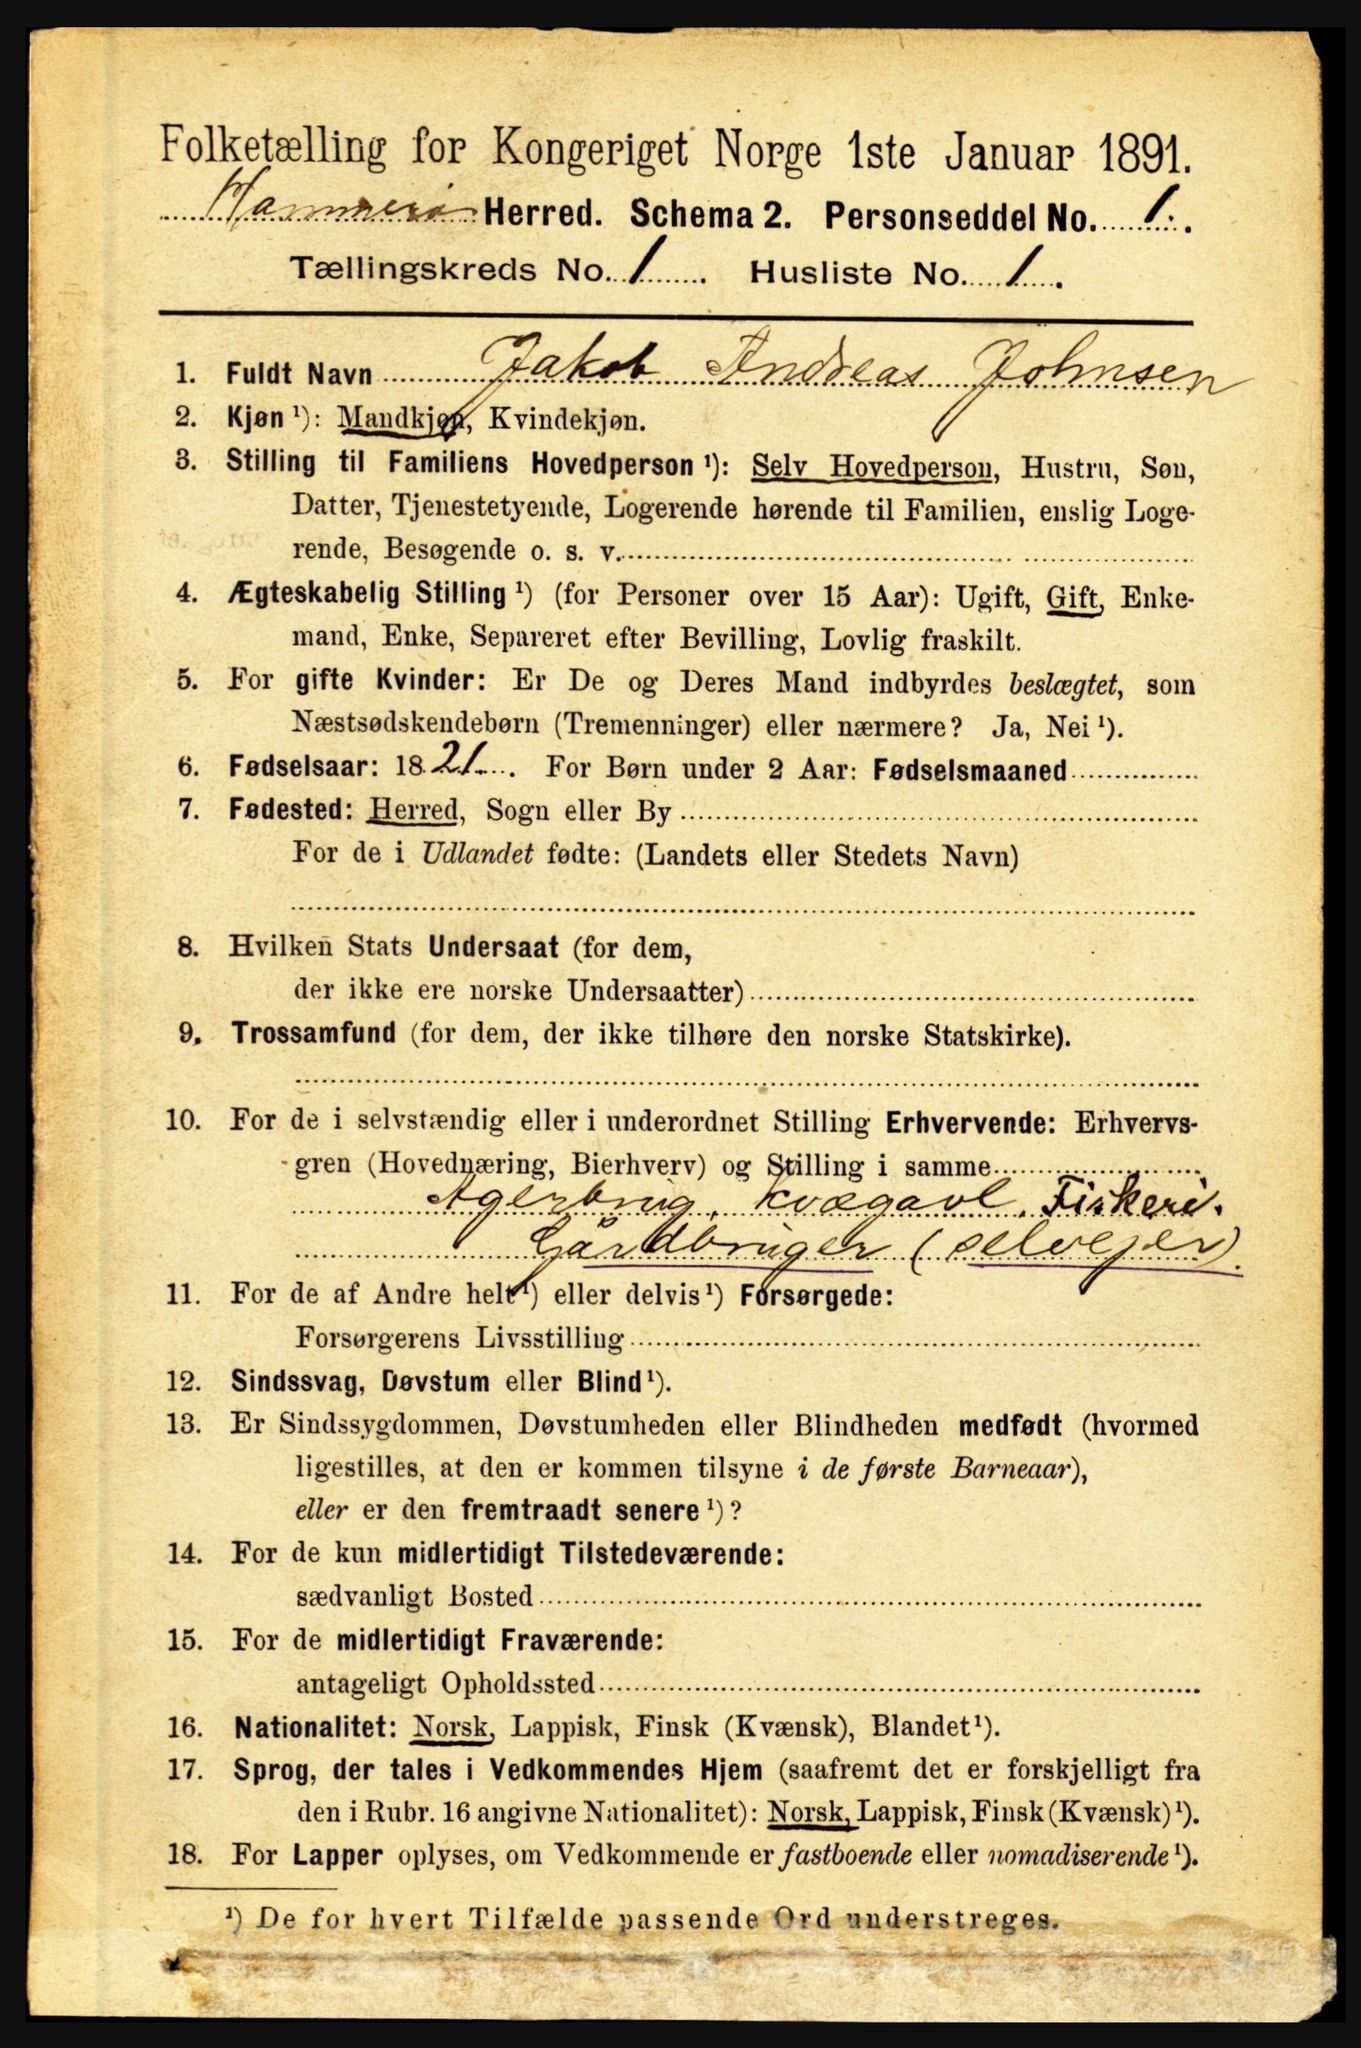 Folketælling for Kongeriget Norge 1ste Januar 1891.
Hammerø Herred. Schema 2. Personseddel No. 1.
Tællingskreds No. 1. Husliste No. 1.
1. Fuldt Navn Jakob Andreas Johnsen
2. Kjøn ¹): Mandkjøn, Kvindekjøn.
3. Stilling til Familiens Hovedperson ¹): Selv Hovedperson, Hustru, Søn,
Datter, Tjenestetyende, Logerende hørende til Familien, enslig Loge-
rende, Besøgende o. s. v.
4. Ægteskabelig Stilling ¹) (for Personer over 15 Aar): Ugift, Gift, Enke-
mand, Enke, Separeret efter Bevilling, Lovlig fraskilt.
5. For gifte Kvinder: Er De og Deres Mand indbyrdes beslægtet, som
Næstsødskendebørn (Tremenninger) eller nærmere? Ja, Nei ¹).
6. Fødselsaar: 1821. For Børn under 2 Aar: Fødselsmaaned
7. Fødested: Herred, Sogn eller By
For de i Udlandet fødte: (Landets eller Stedets Navn)
8. Hvilken Stats Undersaat (for dem,
der ikke ere norske Undersaatter)
9. Trossamfund (for dem, der ikke tilhøre den norske Statskirke).
10. For de i selvstændig eller i underordnet Stilling Erhvervende: Erhvervs-
gren (Hovednæring, Bierhverv) og Stilling i samme
Agerbrug, kvægavl. Fiskeri.
Gårdbruger (selvejer).
11. For de af Andre helt ¹) eller delvis ¹) Forsørgede:
Forsørgerens Livsstilling
12. Sindssvag, Døvstum eller Blind ¹).
13. Er Sindssygdommen, Døvstumheden eller Blindheden medfødt (hvormed
ligestilles, at den er kommen tilsyne i de første Barneaar),
eller er den fremtraadt senere ¹)?
14. For de kun midlertidigt Tilstedeværende:
sædvanligt Bosted
15. For de midlertidigt Fraværende:
antageligt Opholdssted
16. Nationalitet: Norsk, Lappisk, Finsk (Kvænsk), Blandet ¹).
17. Sprog, der tales i Vedkommendes Hjem (saafremt det er forskjelligt fra
den i Rubr. 16 angivne Nationalitet): Norsk, Lappisk, Finsk (Kvænsk) ¹).
18. For Lapper oplyses, om Vedkommende er fastboende eller nomadiserende ¹).
¹) De for hvert Tilfælde passende Ord understreges.